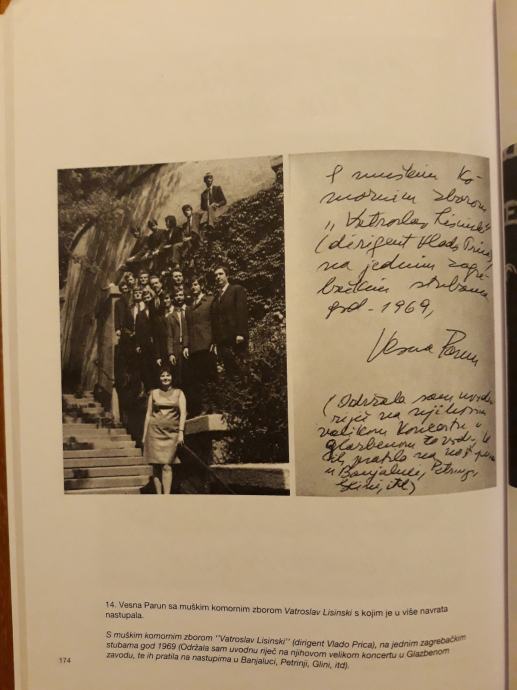 S muškim Ko-
mornim zborom
„Vatroslav Lisinski"
(dirigent Vlado Prica)
na jednim zagre-
bačkim stubama
god - 1969,
Vesna Parun
(Održala sam uvodnu
riječ na njihovom
velikom koncertu u
Glazbenom zavodu, te
ih pratila na
u Banjaluci, Petrinji,
Glini, itd)
14. Vesna Parun sa muškim komornim zborom Vatroslav Lisinski s kojim je u više navrata
nastupala.
S muškim komornim zborom ''Vatroslav Lisinski'' (dirigent Vlado Prica), na jednim zagrebačkim
stubama god 1969 (Održala sam uvodnu riječ na njihovom velikom koncertu u Glazbenom
zavodu, te ih pratila na nastupima u Banjaluci, Petrinji, Glini, itd).
174